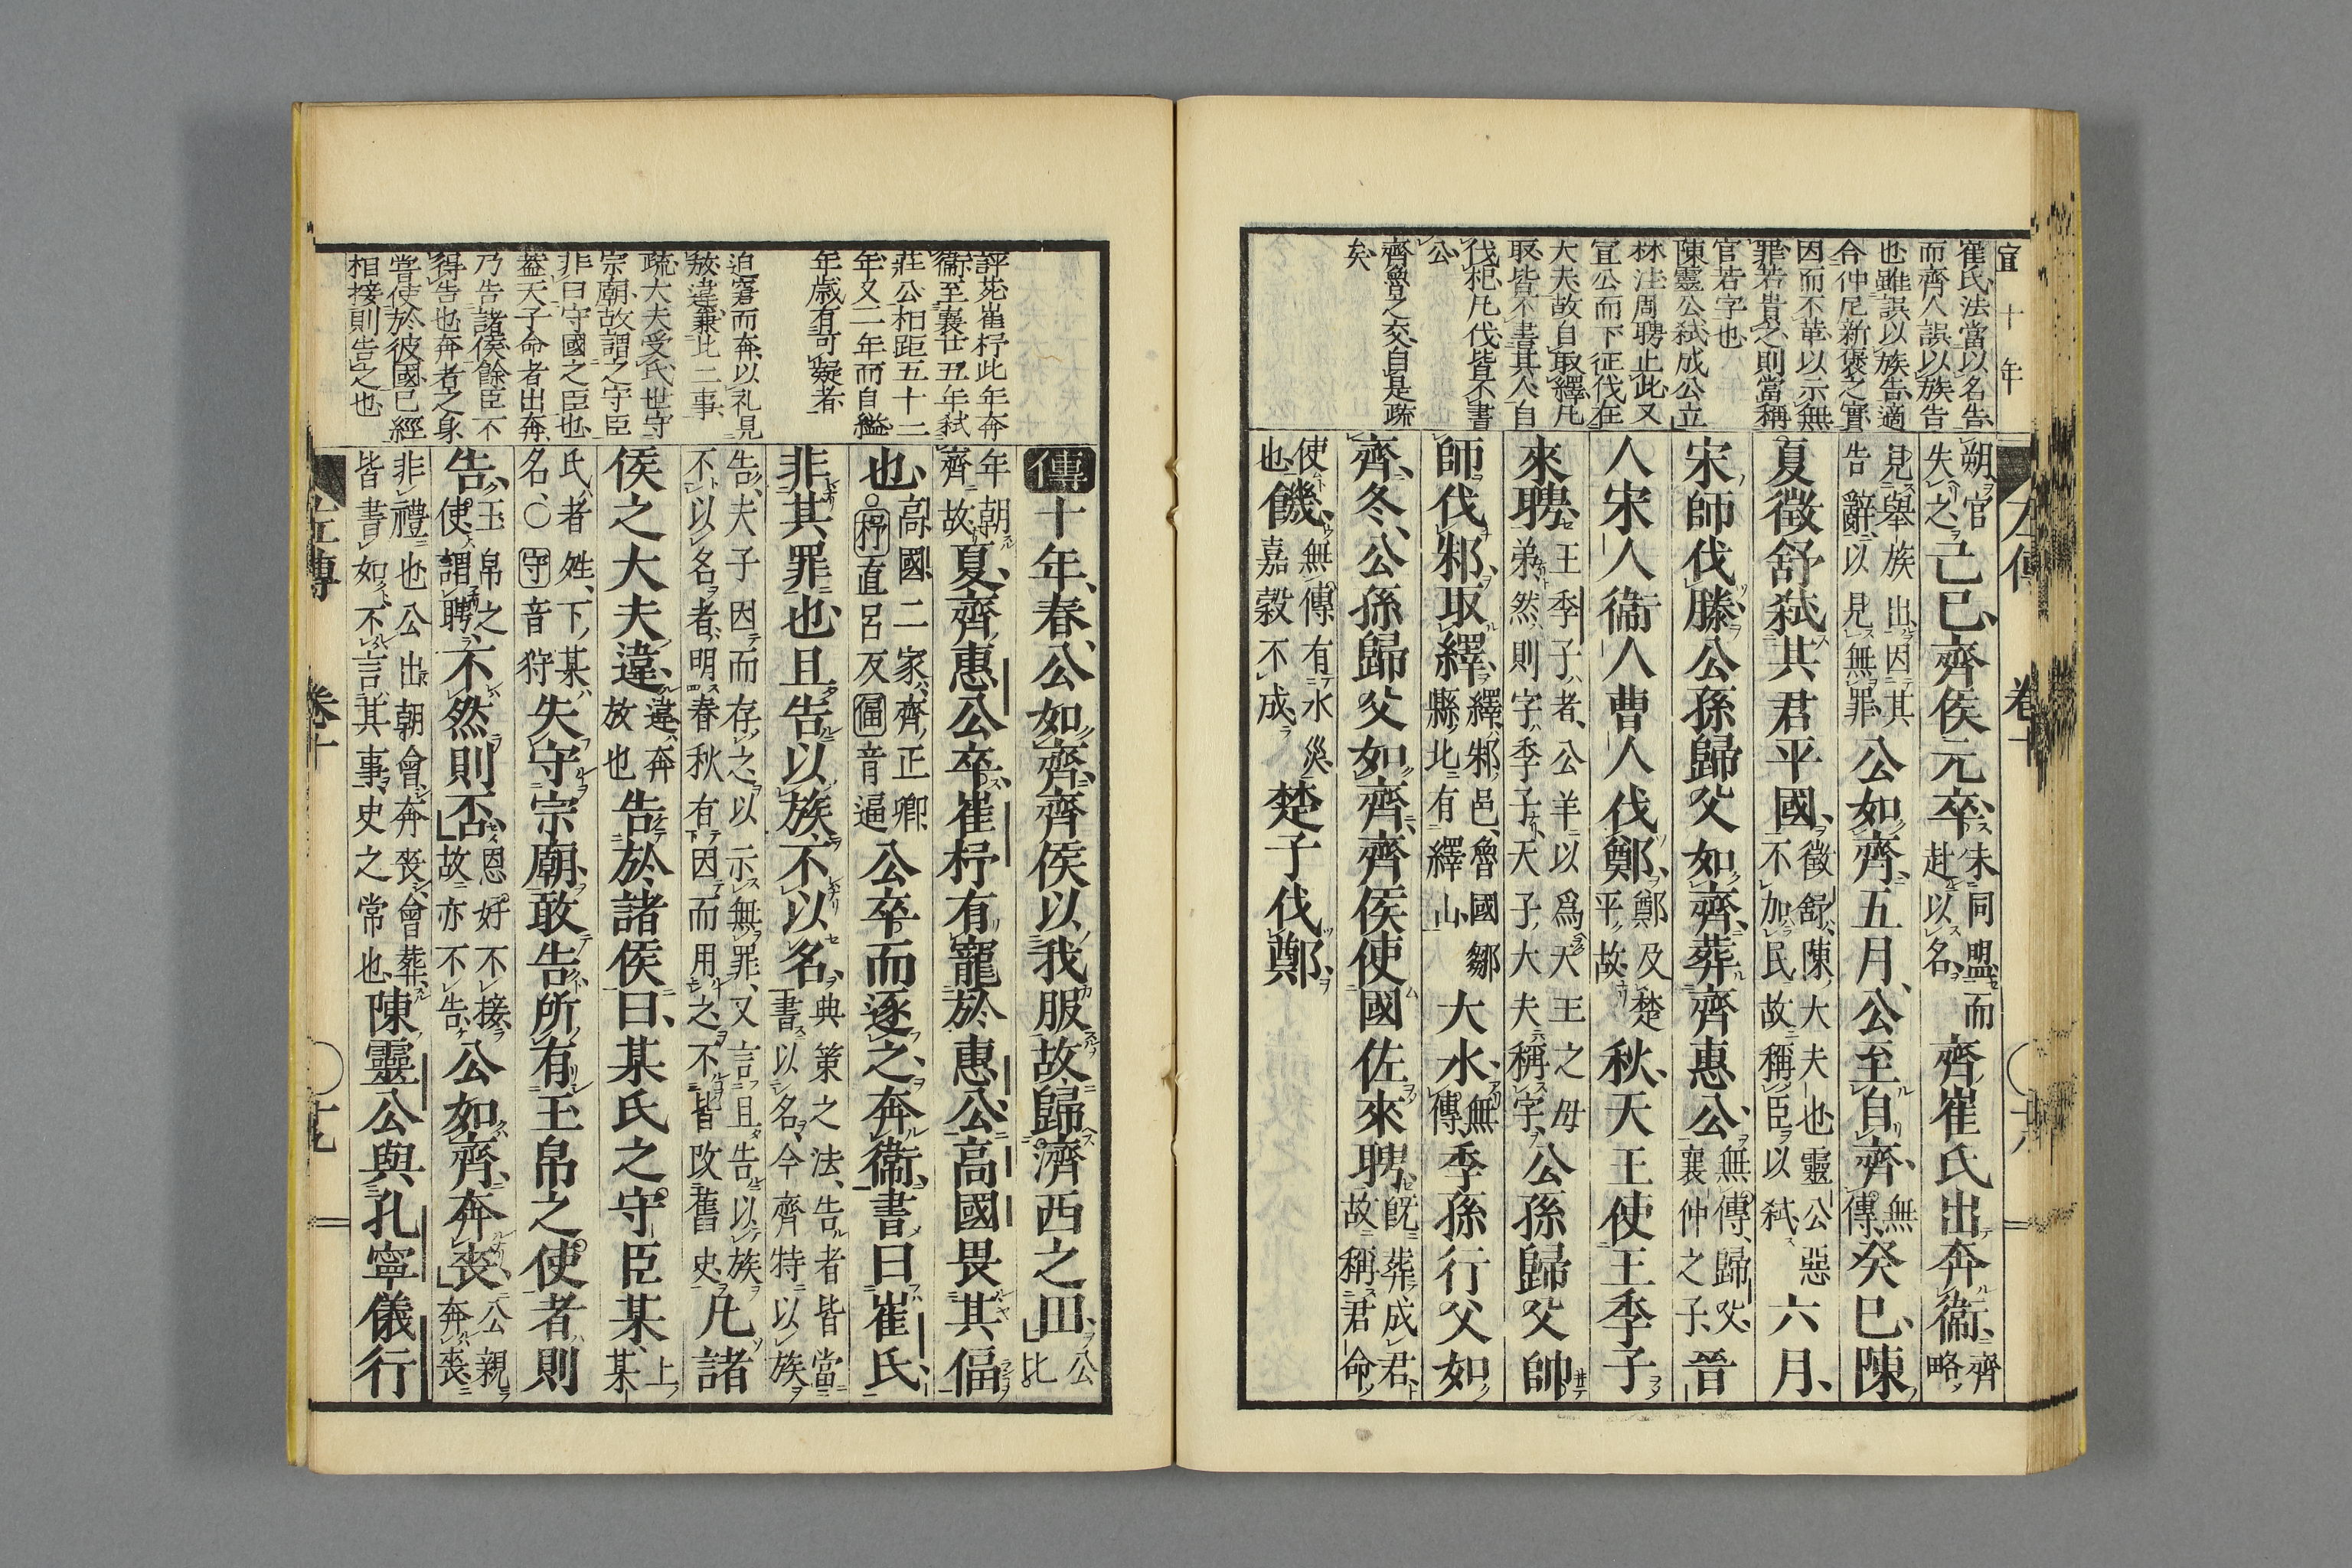 宣十年
崔氏法當以名告
而齊人誤以族告
也雖誤以族告適
合仲尼新褒之實
因而不革以示無
罪若貴之則當稱
官若字也
陳靈公弑成公立
林注周聘止此又
宣公而下征伐在
大夫故自取繹凡
取皆不書其人自
伐杞凡伐皆不書
公
齊魯之交自是疏
矣
左傳 卷十
朔官失之己巳齊侯元卒未同盟而赴以名齊崔氏出奔衞齊略
見舉族出因其告辭以見無罪公如齊五月公至自齊無傳癸巳陳
夏徵舒弑其君平國徵舒陳大夫也靈公惡不加民故稱臣以弑六月
宋師伐滕公孫歸父如齊葬齊惠公無傳歸父襄仲之子晉
人宋人衞人曹人伐鄭鄭及楚平故秋天王使王季子
來聘王季子者公羊以爲天王之母弟然則字季子天子大夫稱字公孫歸父帥
師伐邾取繹繹邾邑魯國鄒縣北有繹山大水無傳季孫行父如
齊冬公孫歸父如齊齊侯使國佐來聘既葬成君故稱君命
使也饑無傳有水災嘉穀不成楚子伐鄭
評苑崔杼此年奔
衞至襄廿五年弑
莊公相距五十二
年又二年而自縊
年歲有可疑者
迫窘而奔以礼見
放違兼此二事
疏大夫受氏世守
宗廟故謂之守臣
非曰守國之臣也
蓋天子命者出奔
乃告諸侯餘臣不
得告也奔者之身
嘗使於彼國已經
相接則告之也
傳十年春公如齊齊侯以我服故歸濟西之田公比
年朝齊故夏齊惠公卒崔杼有寵於惠公高國畏其偪
也高國二家齊正卿○杼直呂反偪音逼公卒而逐之奔衞書曰崔氏
非其罪也且告以族不以名典策之法告者皆當書以名今齊特以族
告夫子因而存之以示無罪又言且告以族不以名者明春秋有因而用之不皆改舊史凡諸
侯之大夫違違奔放也告於諸侯曰某氏之守臣某上某
氏者姓下某名○守音狩失守宗廟敢告所有玉帛之使者則
告玉帛之使謂聘不然則否恩好不接故亦不告公如齊奔喪公親奔喪
非禮也公出朝會奔喪會葬皆書如不言其事史之常也陳靈公與孔寧儀行
左傳 卷十